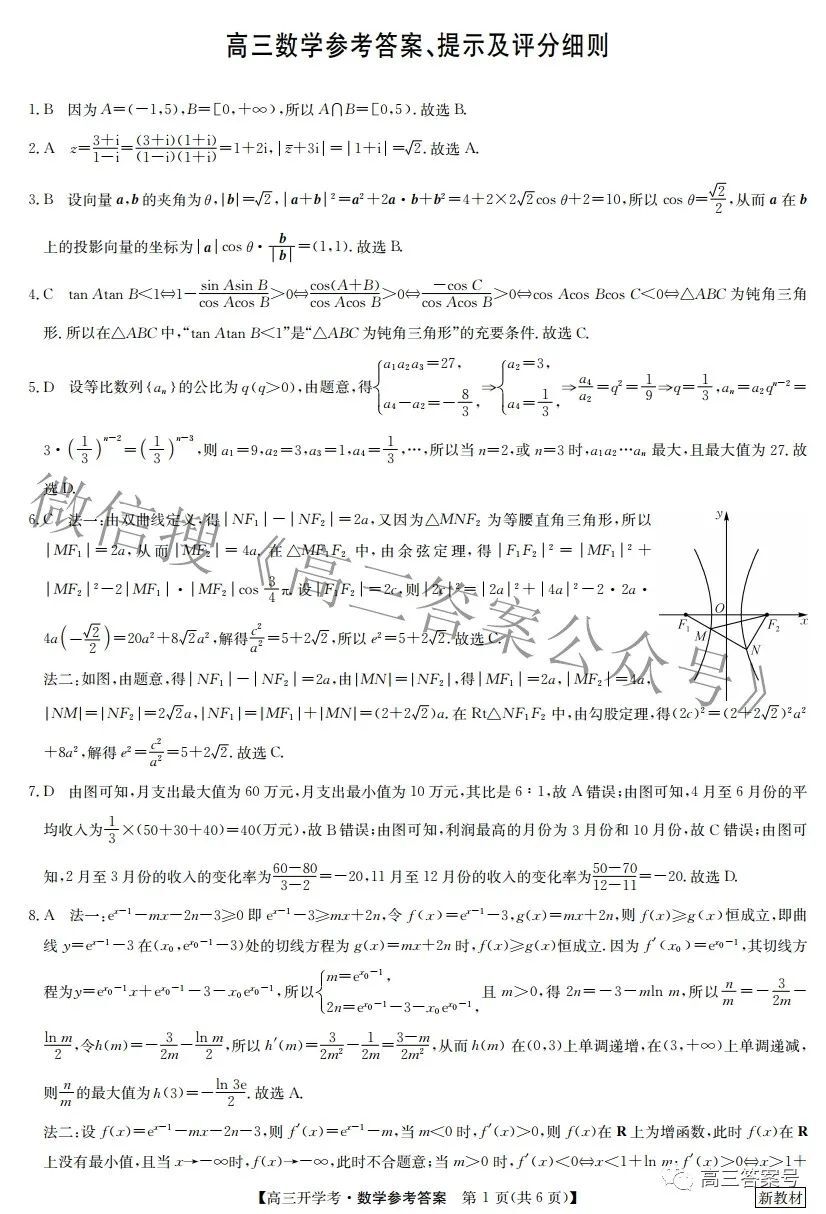 高三数学参考答案、提示及评分细则
1. B 因为 A=(-1,5),B=[0,+∞),所以 A∩B=[0,5).故选 B.
2. A z=\frac{3+i}{1-i}=\frac{(3+i)(1+i)}{(1-i)(1+i)}=1+2i,|\overline{z}+3i|=|1+i|=√2.故选 A.
3. B 设向量 a,b 的夹角为 θ,|b|=√2,|a+b|²=a²+2a·b+b²=4+2×2√2cos θ+2=10,所以 cos θ=\frac{√2}{2},从而 a 在 b
上的投影向量的坐标为|a|cos θ·\frac{b}{|b|}=(1,1).故选 B.
4. C tan Atan B<1⇔1-\frac{sin Asin B}{cos Acos B}>0⇔\frac{cos(A+B)}{cos Acos B}>0⇔\frac{-cos C}{cos Acos B}>0⇔cos Acos Bcos C<0⇔△ABC 为钝角三角
形.所以在△ABC 中,“tan Atan B<1”是“△ABC 为钝角三角形”的充要条件.故选 C.
5. D 设等比数列{aₙ}的公比为 q(q>0),由题意,得{a₁a₂a₃=27, a₄-a₂=-\frac{8}{3},⇒{a₂=3, a₄=\frac{1}{3},⇒\frac{a₄}{a₂}=q²=\frac{1}{9}⇒q=\frac{1}{3},aₙ=a₂qⁿ⁻²=
3·(\frac{1}{3})ⁿ⁻²=(\frac{1}{3})ⁿ⁻³,则 a₁=9,a₂=3,a₃=1,a₄=\frac{1}{3},…,所以当 n=2,或 n=3 时,a₁a₂…aₙ 最大,且最大值为 27.故
选 D.
6. C 法一:由双曲线定义,得|NF₁|-|NF₂|=2a,又因为△MNF₂ 为等腰直角三角形,所以
|MF₁|=2a,从而|MF₂|=4a.在△MF₁F₂ 中,由余弦定理,得|F₁F₂|²=|MF₁|²+
|MF₂|²-2|MF₁|·|MF₂|cos \frac{3}{4}π.设|F₁F₂|=2c,则|2c|²=|2a|²+|4a|²-2·2a·
4a(-\frac{√2}{2})=20a²+8√2a²,解得\frac{c²}{a²}=5+2√2,所以 e²=5+2√2.故选 C.
法二:如图,由题意,得|NF₁|-|NF₂|=2a,由|MN|=|NF₂|,得|MF₁|=2a,|MF₂|=4a,
|NM|=|NF₂|=2√2a,|NF₁|=|MF₁|+|MN|=(2+2√2)a.在 Rt△NF₁F₂ 中,由勾股定理,得(2c)²=(2+2√2)²a²
+8a²,解得 e²=\frac{c²}{a²}=5+2√2.故选 C.
y
O
F₁
M
F₂
x
N
7. D 由图可知,月支出最大值为 60 万元,月支出最小值为 10 万元,其比是 6∶1,故 A 错误;由图可知,4 月至 6 月份的平
均收入为\frac{1}{3}×(50+30+40)=40(万元),故 B 错误;由图可知,利润最高的月份为 3 月份和 10 月份,故 C 错误;由图可
知,2 月至 3 月份的收入的变化率为\frac{60-80}{3-2}=-20,11 月至 12 月份的收入的变化率为\frac{50-70}{12-11}=-20.故选 D.
8. A 法一:eˣ⁻¹-mx-2n-3≥0 即 eˣ⁻¹-3≥mx+2n,令 f(x)=eˣ⁻¹-3,g(x)=mx+2n,则 f(x)≥g(x)恒成立,即曲
线 y=eˣ⁻¹-3 在(x₀,e^{x₀-1}-3)处的切线方程为 g(x)=mx+2n 时,f(x)≥g(x)恒成立.因为 f′(x₀)=e^{x₀-1},其切线方
程为y=e^{x₀-1}x+e^{x₀-1}-3-x₀e^{x₀-1},所以{m=e^{x₀-1}, 2n=e^{x₀-1}-3-x₀e^{x₀-1},且 m>0,得 2n=-3-mln m,所以\frac{n}{m}=-\frac{3}{2m}-
\frac{ln m}{2},令h(m)=-\frac{3}{2m}-\frac{ln m}{2},所以 h′(m)=\frac{3}{2m²}-\frac{1}{2m}=\frac{3-m}{2m²},从而 h(m) 在(0,3)上单调递增,在(3,+∞)上单调递减,
则\frac{n}{m}的最大值为 h(3)=-\frac{ln 3e}{2}.故选 A.
法二:设 f(x)=eˣ⁻¹-mx-2n-3,则 f′(x)=eˣ⁻¹-m,当 m<0 时,f′(x)>0,则 f(x)在 R 上为增函数,此时 f(x)在 R
上没有最小值,且当 x→-∞时,f(x)→-∞,此时不合题意;当 m>0 时,f′(x)<0⇔x<1+ln m;f′(x)>0⇔x>1+
【高三开学考·数学参考答案 第 1 页(共 6 页)】
新教材
微信搜《高三答案公众号》
高三答案号